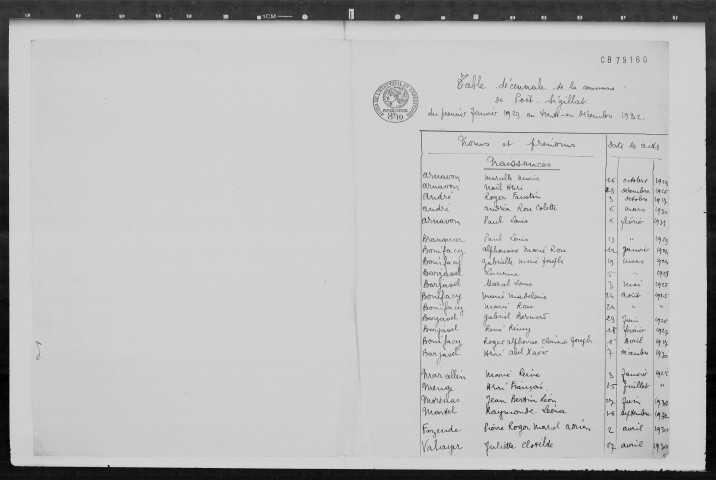 1CM
CB79160
Table décennale de la commune
de Poët-Sigillat
du premier Janvier 1923 au trente-un décembre 1932.
Noms et prénoms date des actes
Naissances
Arnavon Marcelle Marie 16 octobre 1923
Arnavon Noël Henri 23 décembre 1925
André Roger Faustin 3 octobre
André Andréa Rose Colette 6 mars 1930
Arnavon Paul Louis 5 février 1931
Branquier Paul Louis 13 " 1923
Bonifacy Alphonsine Marie Rose 12 janvier 1924
Bonifacy Gabrielle Marie Joseph 19 mars 1924
Barjavel Lucienne 5 "
Barjavel Marcel Louis 3 mai 1925
Bonifacy Marie Madeleine 24 août 1925
Bonifacy Marie Rose 24 " "
Barjavel Gabriel Bernard 29 Juin 1926
Barjavel René Rémy 18 février 1927
Bonifacy Roger Alphonse Joseph 15 Avril
Barjavel Henri Abel Xavier 7 décembre 1930
Marcellin Marie Reine 3 Janvier 1925
Menge Henri François 15 Juillet "
Morénas Jean Bertin Léon 27 Juin 1930
Martel Raymonde Léona 16 septembre 1932
Fazende Pierre Roger Marcel Adrien 2 avril 1930
Valayer Juliette Clotilde 27 avril 1930